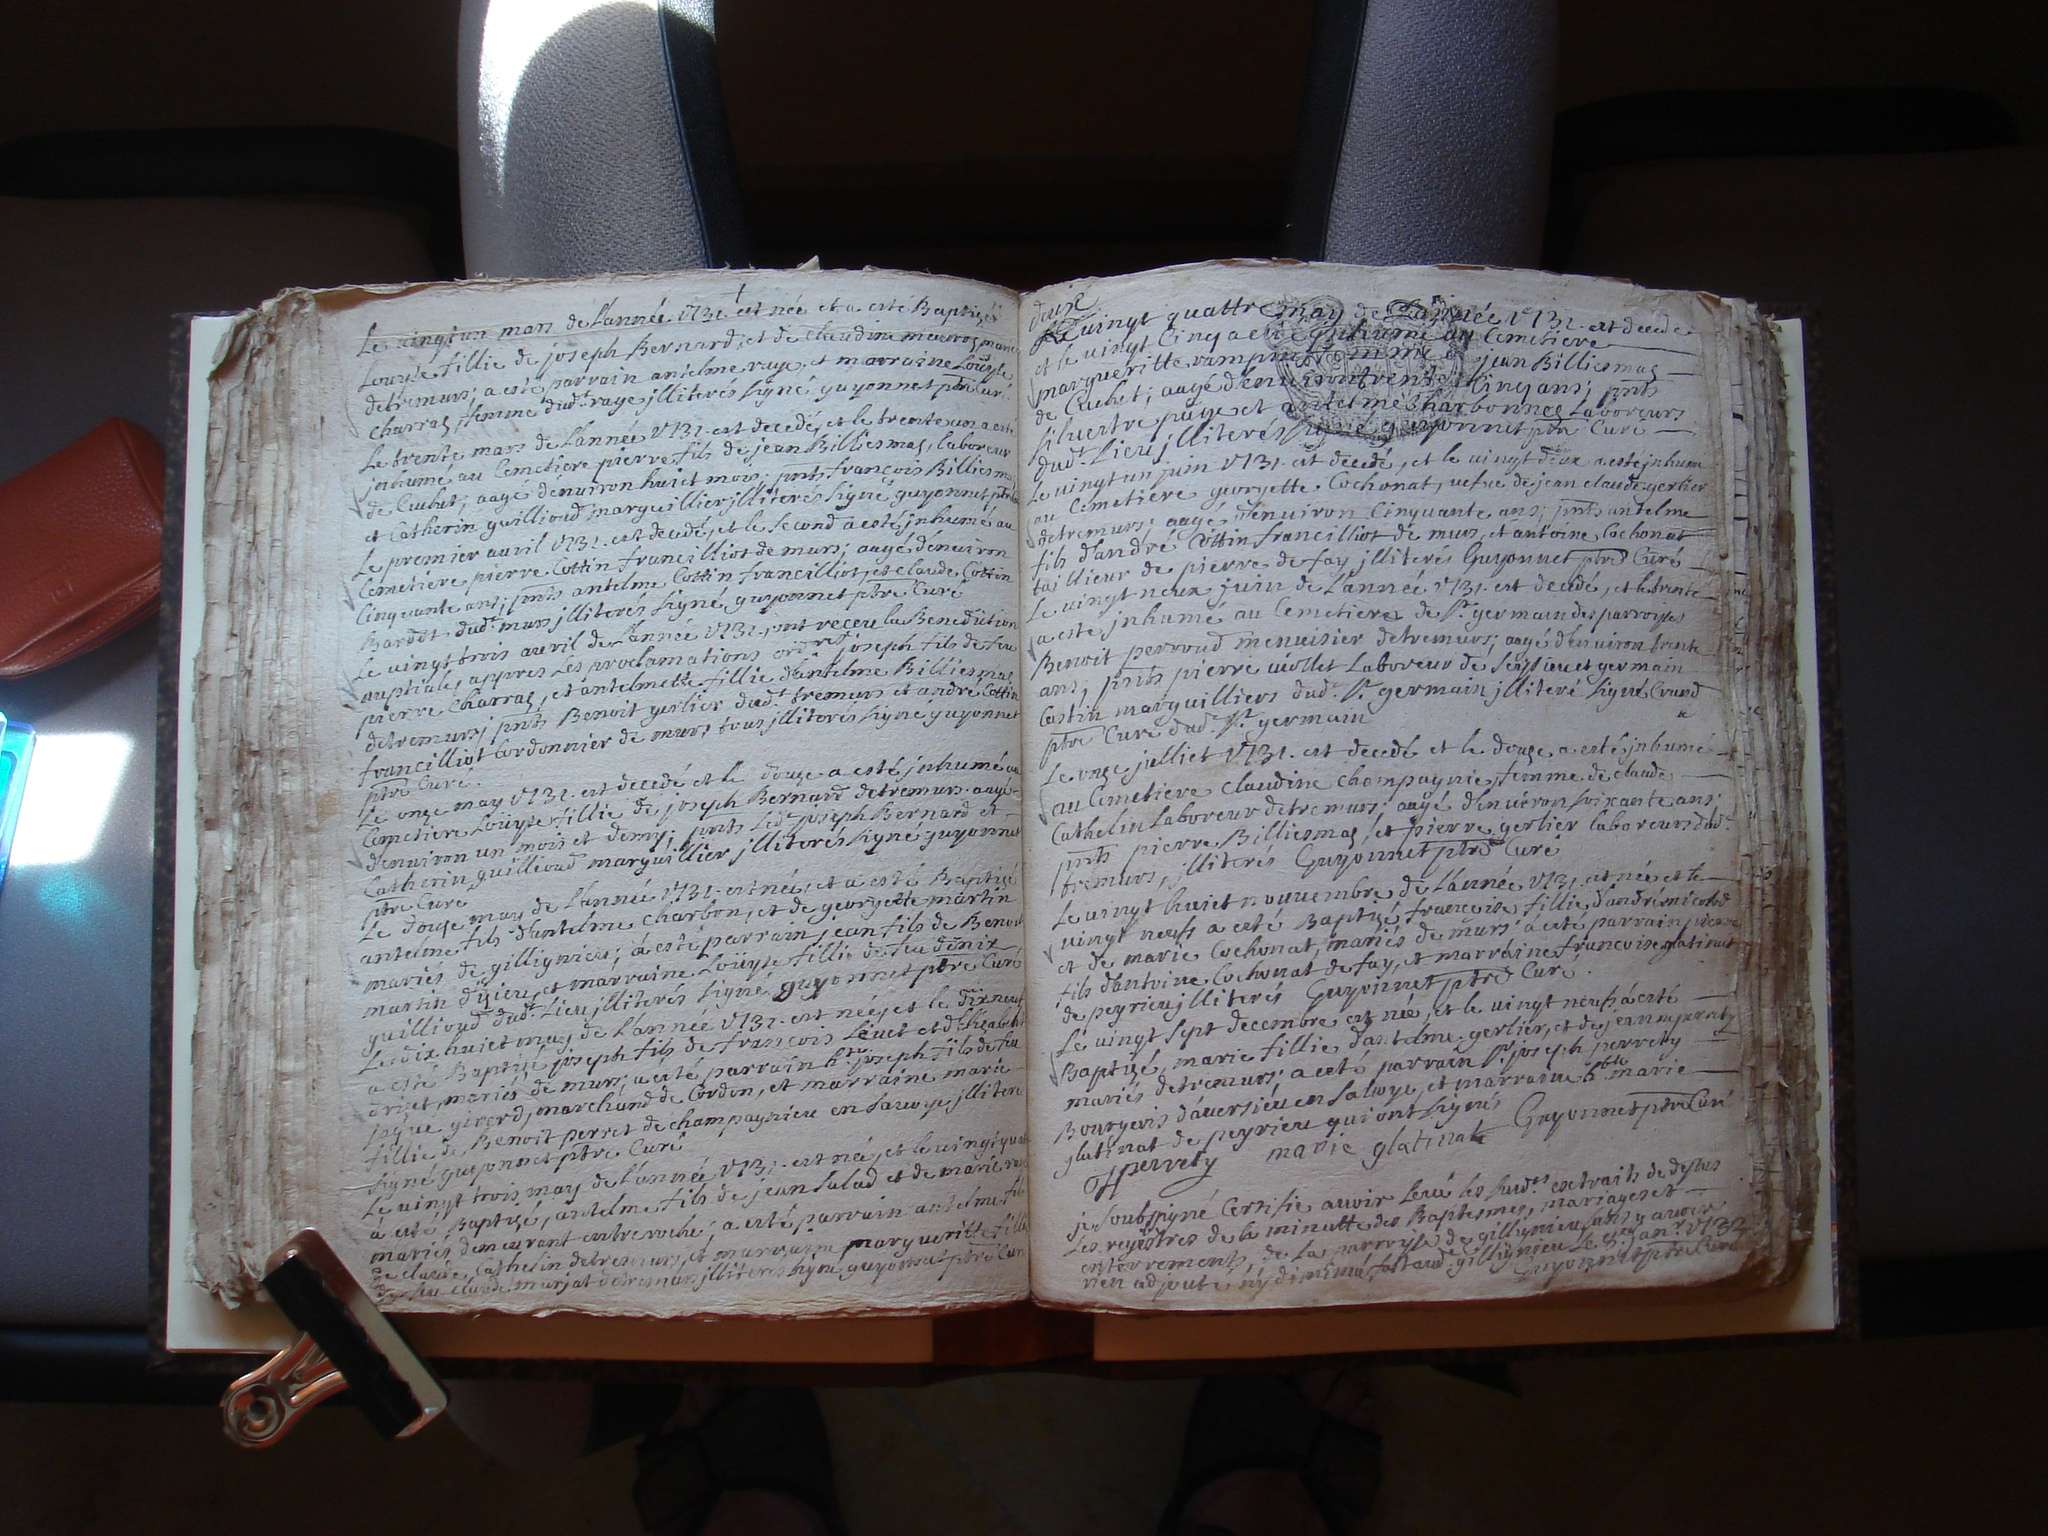 Le vingt un mars de L'année 1731 est née et a esté Baptizée
Louyse fillie de joseph Bernard, et de claudine mauroz mariés
detremurs; a esté parrain antelme raye, et marraine Louyse
charraz, femme dud.t raye jlliterés signé guyonnet ptre Curé.
Le trente mars de L'année 1731. est decedé, et le trente un a esté
jnhumé au Cemetiere pierre fils de jean Billiesmaz, laboreur
de Cuchet, aagé denuiron huiet mois; pnts françois Billiesmaz
et Catherin guillioud marguillier jlliterés signé guyonnet ptre
Le premier auril 1731. est decedé, et le second a esté jnhumé au
Cemetiere pierre Cottin francilliot de murs; aagé denuiron
Cinquante ans; pnts antelme Cottin francilliot, et claude Cottin
Bardot dud.t murs jlliterés signé guyonnet ptre Curé
Le vingt trois auril de L'année 1731. ont receu la Benediction
nuptiale, appres Les proclamations ord.res joseph fils de feu
pierre Charraz, et antelmette fillie d'antelme Billiesmaz
detremurs; pnts Benoit gerlier dud.t tremurs et andré Cottin
francilliot Cordonnier de murs tous jlliterés signé guyonnet
ptre Curé.
Le onze may 1731. est decedé et le douze a esté jnhumé au
Cemetiere Loüyse fillie de joseph Bernard detremurs aagé
denuiron un mois et demy; pnts Led.t joseph Bernard et
Catherin guillioud marguillier jlliterés signé guyonnet
ptre Curé
Le douze may de L'année 1731. est né, et a esté Baptizé
antelme fils d'antelme Charbon, et de georgette martin
mariés de gillignieu; a esté parrain jean fils de Benoit
martin d'izieu, et marraine Loüyse fillie de feu denix
guillioud dud.t Lieu jlliterés signé guyonnet ptre Curé
Le dix huiet may de L'année 1731. est né, et le dix neuf
a esté Baptizé joseph fils de françois Leuet et d'Elizabeth
mariés de murs; a esté parrain joseph fils de feu
girerd, marchand de Cordon, et marraine marie
fillie de Benoit perret de champagnieu en Sauoye jlliterés
signé guyonnet ptre Curé
Le vingt trois may de L'année 1731. est né, et le vingt quatre
à esté Baptizé, antelme fils de jean Salad et de marie
mariés demeurant entreroche; a esté parrain antelme fils
de claude Cathelin detremurs, et marraine marguerite fillie
de feu claude murjat detremurs jlliterés signé guyonnet ptre Curé
deux
Le vingt quattre may de L'année 1731. est decedé
et le vingt Cinq a esté jnhumé au Cemetiere
margueritte rampin femme à jean Billiesmaz
de Cuchet; aagé d'enuiron trente Cinq ans; pnts
siluestre page et antelme Charbonnel Laboreurs
dud.t Lieu jlliterés signé guyonnet ptre Curé
Le vingt un juin 1731. est decedé, et le vingt deux a esté jnhumé
au Cemetiere georgette Cochonat, uefue de jean claude gerlier
detremurs; aagé d'enuiron Cinquante ans; pnts antelme
fils d'andré Cottin francilliot de murs, et antoine Cochonat
taillieur de pierre de fay jlliterés Guyonnet ptre Curé
Le vingt neuf juin de L'année 1731. est decedé, et le trente
a esté jnhumé au Cemetiere de S.t germain des parroisses
Benoit perroud menuisier detremurs; aagé d'enuiron trente
ans, pnts pierre uiollet Laboreur de Seyssieu et germain
Costin marguilliers dud.t S.t germain jlliteré signé Crusd
ptre Curé dud.t S.t germain
Le onze julliet 1731. est decedé et le douze a esté jnhumé
au Cemetiere claudine Champagnie, femme de claude
Cathelin Laboreur detremurs; aagé d'enuiron soixante ans;
pnts pierre Billiesmaz, et pierre gerlier laboreurs dud.t
tremurs, jlliterés Guyonnet ptre Curé
Le vingt huiet nouuembre de L'année 1731. est née et le
vingt neuf a esté Baptizé françoise fillie d'andré nicolod
et de marie Cochonat, mariés de murs a esté parrain pierre
fils d'antoine Cochonat de fay, et marraine françoise glatinat
de peyrieu jlliterés Guyonnet ptre Curé.
Le vingt sept decembre est née, et le vingt neuf a esté
Baptizé, marie fillie d'antelme gerlier, et de jeanne
mariés detremurs; a esté parrain S.r joseph perrety
Bourgeois d'auersieu en Sauoye, et marraine h.ble marie
glatinat de peyrieu qui ont signés Guyonnet ptre Curé
JPerrety marie glatinat
je soubsigné Certifie auoir Leué les susd.ts extraits de dessus
Les registres de la minutte des Baptesmes, mariages et
enterrements, de La parroisse de gillignieu sans y auoir
rien adjouté ny diminué, fait aud.t gillignieu Le jan.r 1732
Guyonnet ptre Curé